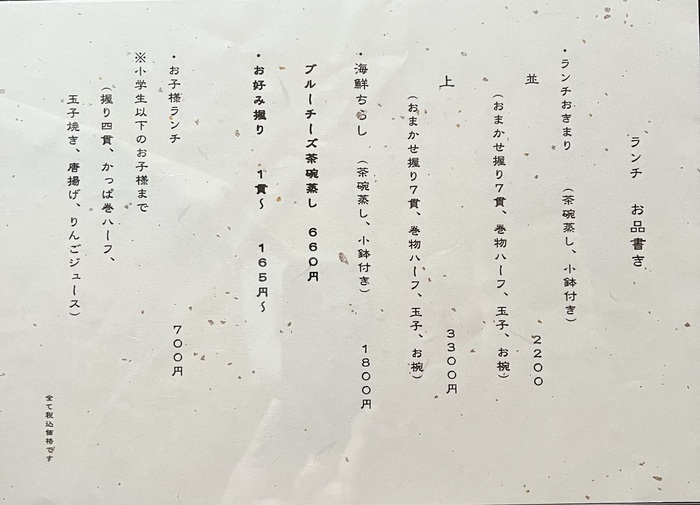 ランチ　お品書き
・ランチおきまり　（茶碗蒸し、小鉢付き）
並　２２００
（おまかせ握り７貫、巻物ハーフ、玉子、お椀）
上　３３００円
（おまかせ握り７貫、巻物ハーフ、玉子、お椀）
・海鮮ちらし　（茶碗蒸し、小鉢付き）　１８００円
ブルーチーズ茶碗蒸し　６６０円
・お好み握り　１貫〜　１６５円〜
※小学生以下のお子様まで
・お子様ランチ　７００円
（握り四貫、かっぱ巻ハーフ、
玉子焼き、唐揚げ、りんごジュース）
全て税込価格です